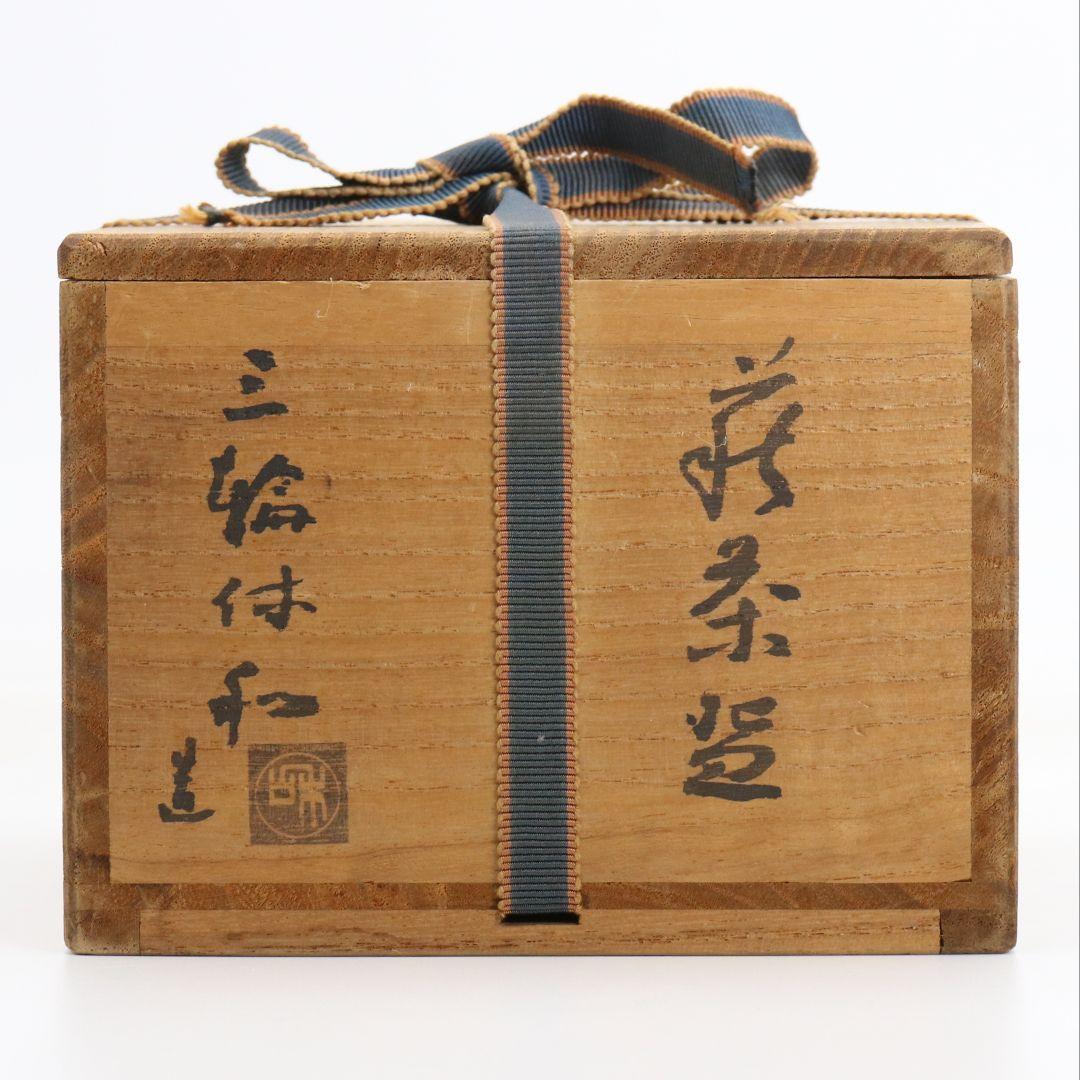 萩茶盌
三輪休和造